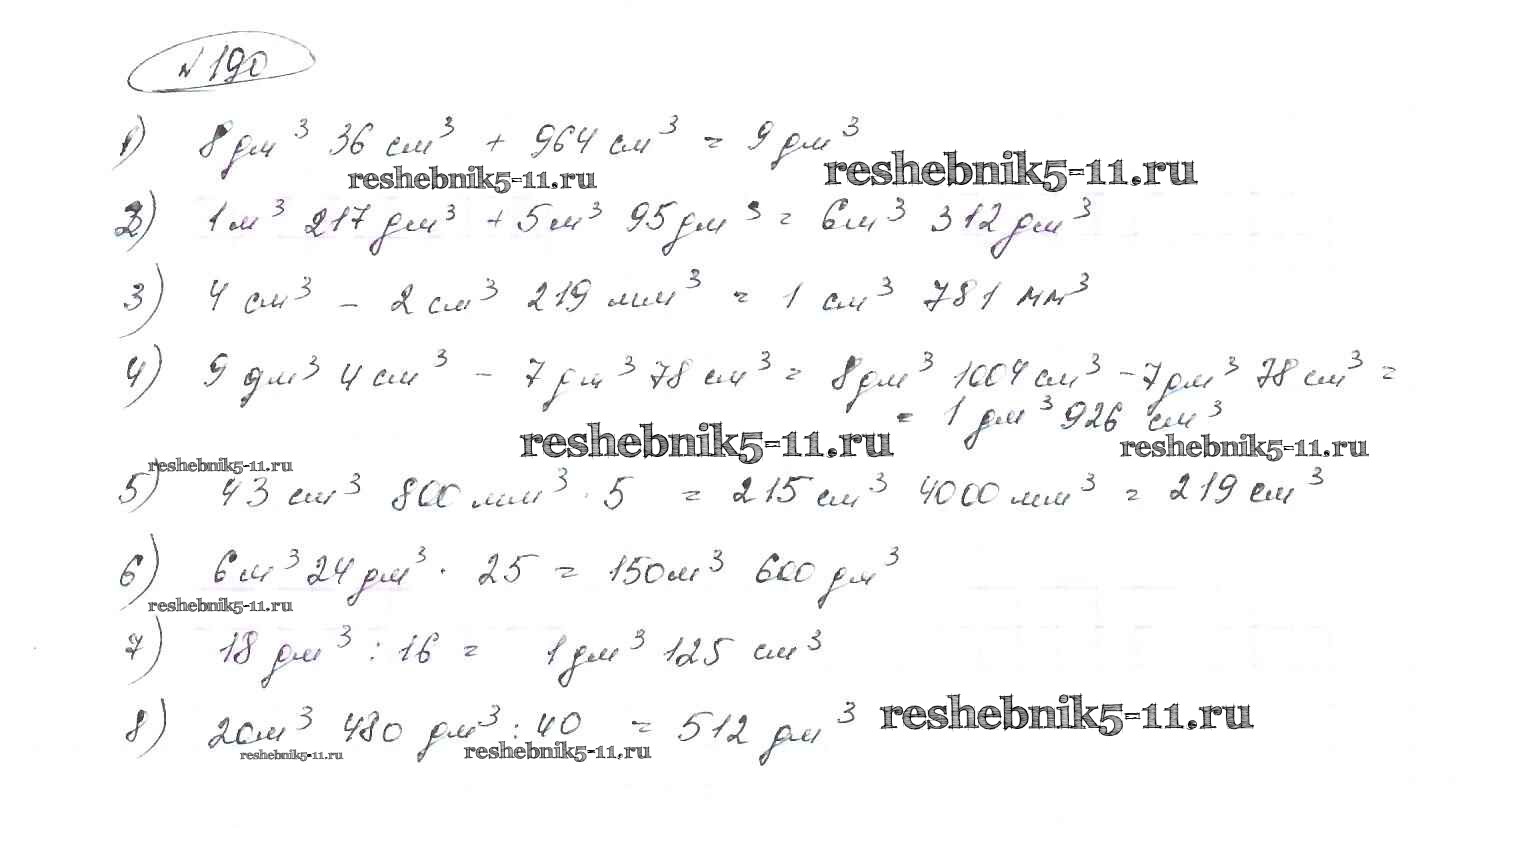 №190
1) 8 дм³ 36 см³ + 964 см³ = 9 дм³
reshebnik5-11.ru
reshebnik5-11.ru
2) 1 м³ 217 дм³ + 5 м³ 95 дм³ = 6 м³ 312 дм³
3) 4 см³ - 2 см³ 219 мм³ = 1 см³ 781 мм³
4) 9 дм³ 4 см³ - 7 дм³ 78 см³ = 8 дм³ 1004 см³ - 7 дм³ 78 см³ =
= 1 дм³ 926 см³
reshebnik5-11.ru
reshebnik5-11.ru
reshebnik5-11.ru
5) 43 см³ 800 мм³ · 5 = 215 см³ 4000 мм³ = 219 см³
6) 6 м³ 24 дм³ · 25 = 150 м³ 600 дм³
reshebnik5-11.ru
7) 18 дм³ : 16 = 1 дм³ 125 см³
8) 20 м³ 480 дм³ : 40 = 512 дм³
reshebnik5-11.ru
reshebnik5-11.ru
reshebnik5-11.ru